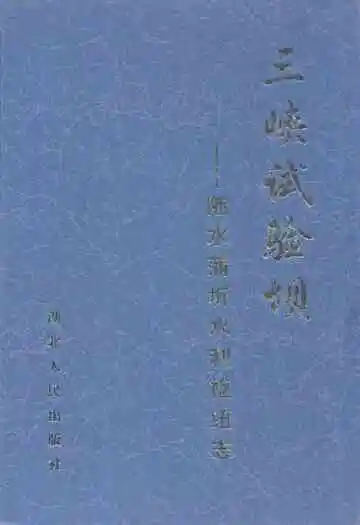 三峡试验坝
——陆水蒲圻水利枢纽志
湖北人民出版社